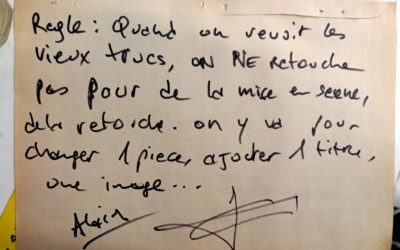 Regle : Quand on revoit les
vieux trucs, on NE retouche
pas pour de la mise en scene,
de la retouche. on y va pour
changer 1 piece, ajouter 1 titre,
une image...
Alain